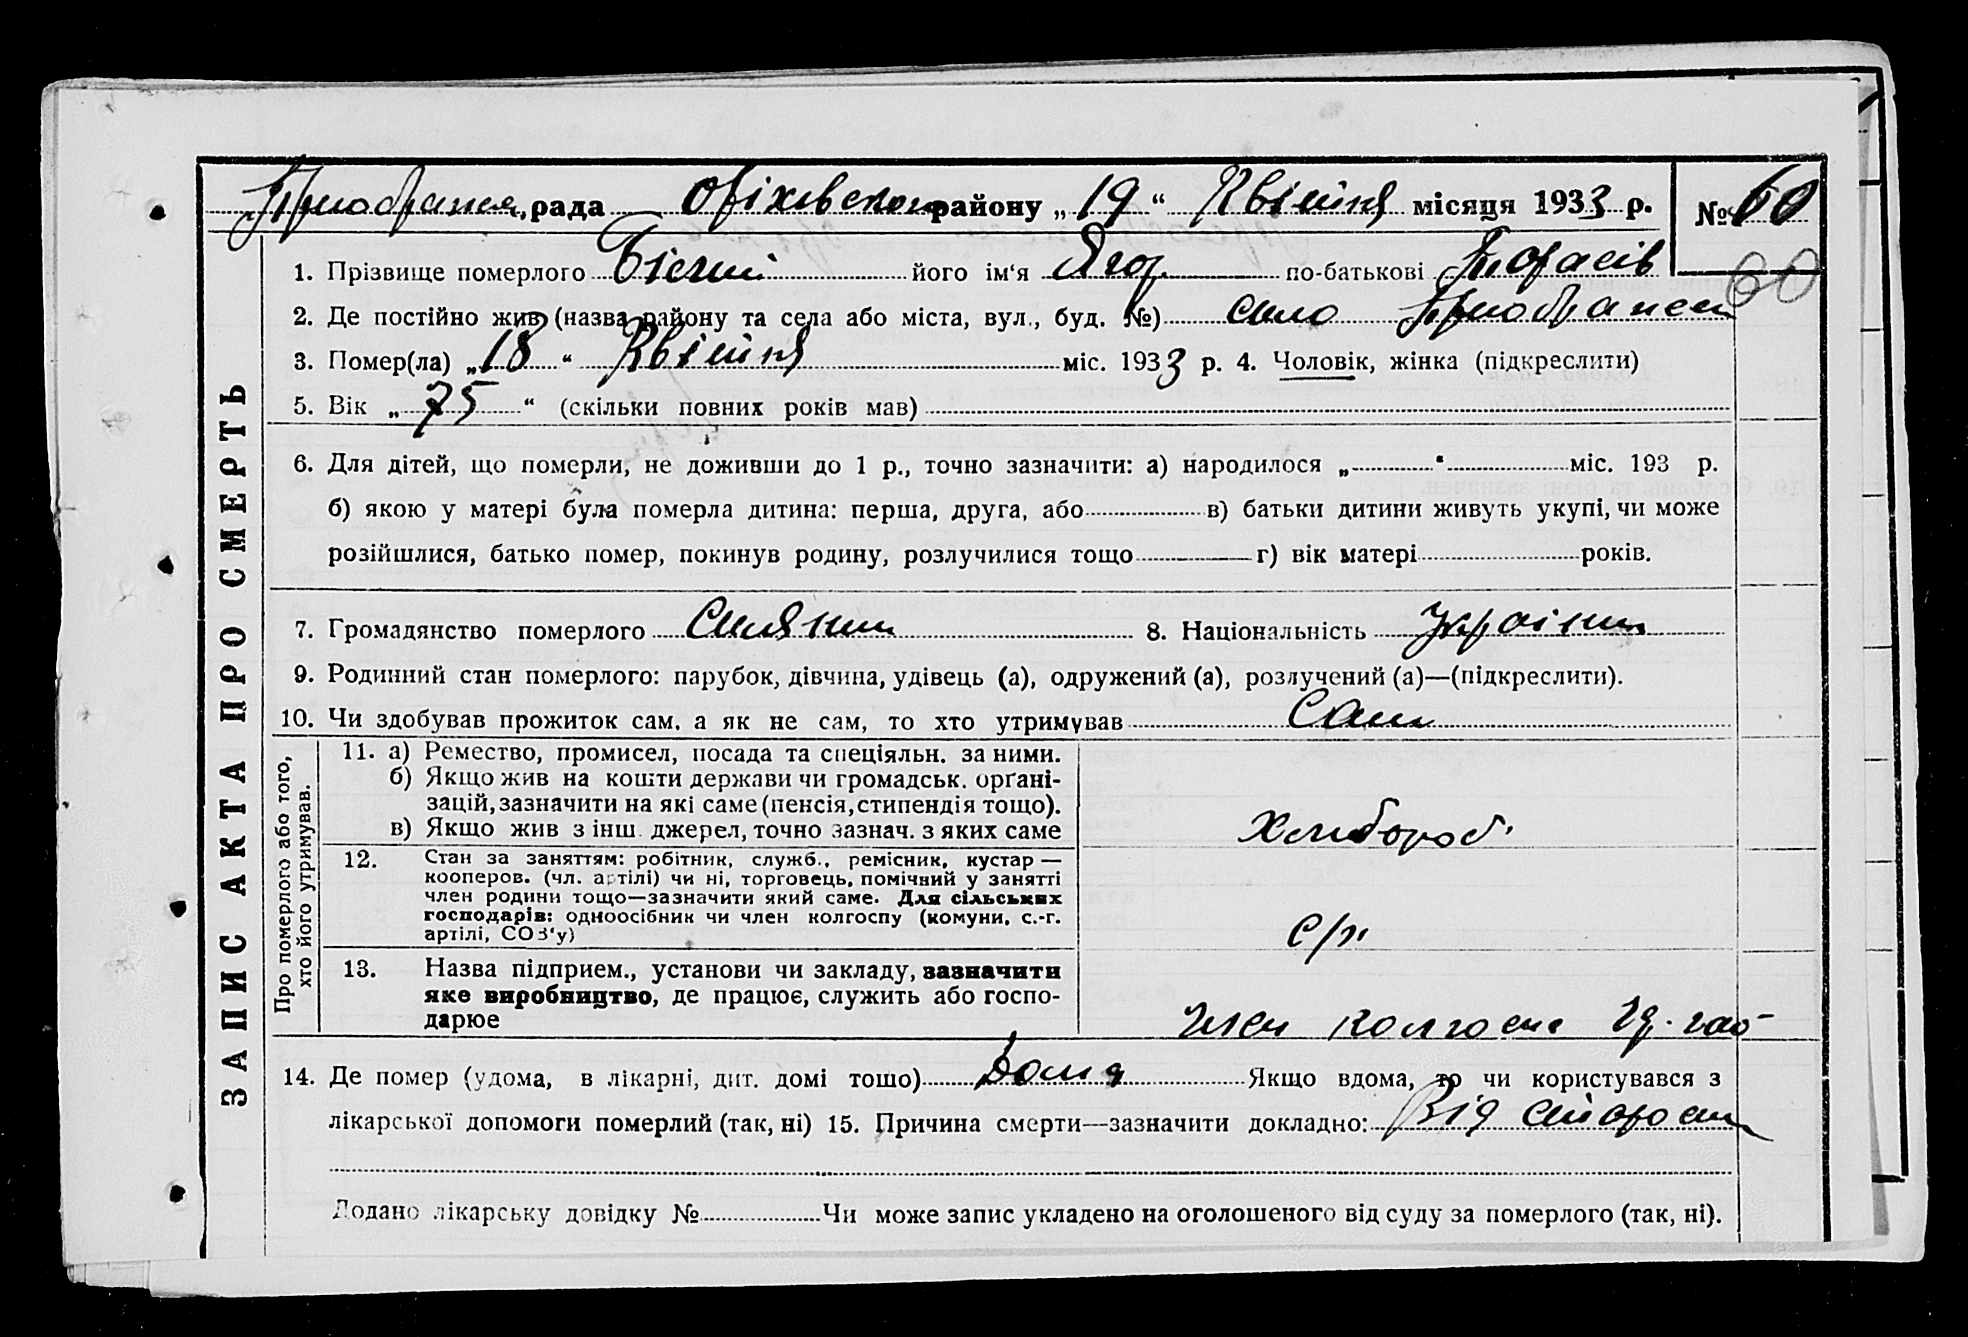 Приображен, рада Оріхівського району „ 19 “ Квітня місяця 1933 р. № 60
60
1. Прізвище померлого Бігчий його ім‘я Ягор по-батькові Тарасів
2. Де постійно жив (назва району та села або міста, вул., буд. №) село Приображен
3. Помер(ла) „ 18 “ Квітня міс. 1933 р. 4. Чоловік, жінка (підкреслити)
5. Вік „ 75 “ (скільки повних років мав)
6. Для дітей, що померли, не доживши до 1 р., точно зазначити: а) народилося „ “ міс. 193 р.
б) якою у матері була померла дитина: перша, друга, або в) батьки дитини живуть укупі, чи може
розійшлися, батько помер, покинув родину, розлучилися тощо г) вік матері років.
7. Громадянство померлого Силянин 8. Національність Українец
9. Родинний стан померлого: парубок, дівчина, удівець (а), одружений (а), розлучений (а)—(підкреслити).
10. Чи здобував прожиток сам, а як не сам, то хто утримував Сам
ЗАПИС АКТА ПРО СМЕРТЬ
Про померлого або того,
хто його утримував.
11. а) Ремество, промисел, посада та спеціяльн. за ними.
б) Якщо жив на кошти держави чи громадськ. орґані-
зацій, зазначити на які саме (пенсія, стипендія тощо).
в) Якщо жив з інш. джерел, точно зазнач. з яких саме
Хлибороб
12. Стан за заняттям: робітник, служб., ремісник, кустар —
кооперов. (чл. артілі) чи ні, торговець, помічний у занятті
член родини тощо—зазначити який саме. Для сільських
господарів: одноосібник чи член колгоспу (комуни, с.-г.
артілі, СОЗ‘у)
с/г
13. Назва підприєм., установи чи закладу, зазначити
яке виробництво, де працює, служить або госпо-
дарює
член колгоспу
14. Де помер (удома, в лікарні, дит. домі тощо) Дома Якщо вдома, то чи користувався з
лікарської допомоги померлий (так, ні) 15. Причина смерти—зазначити докладно: Від старости
Додано лікарську довідку № Чи може запис укладено на оголошеного від суду за померлого (так, ні).